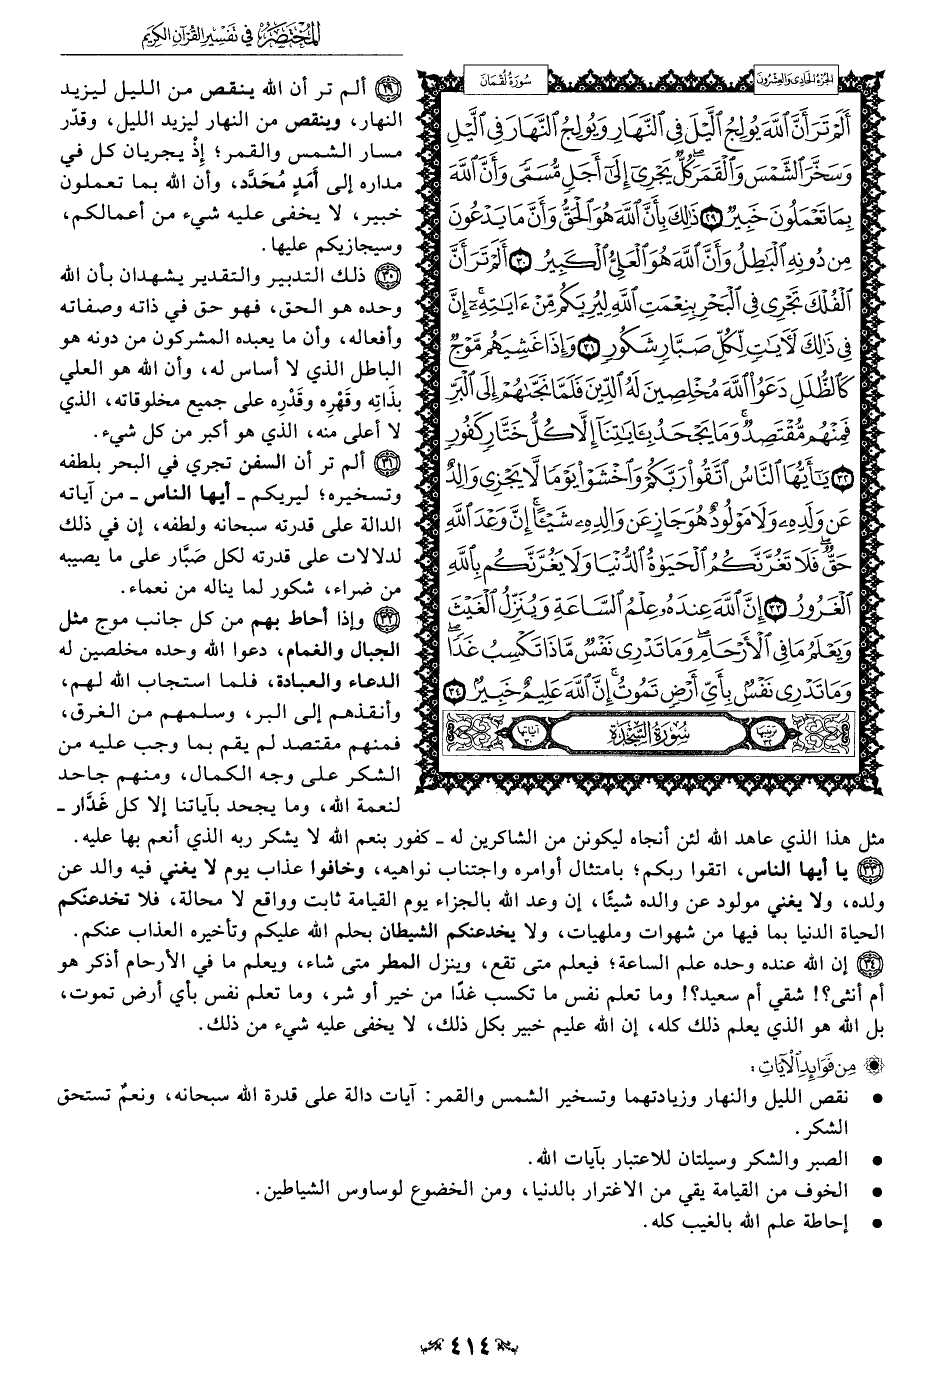 المختصر في تفسير القرآن الكريم
الجزء الحادي والعشرون
سورة لقمان
أَلَمْ تَرَ أَنَّ ٱللَّهَ يُولِجُ ٱلَّيْلَ فِي ٱلنَّهَارِ وَيُولِجُ ٱلنَّهَارَ فِي ٱلَّيْلِ
وَسَخَّرَ ٱلشَّمْسَ وَٱلْقَمَرَۖ كُلٌّ يَجْرِيٓ إِلَىٰٓ أَجَلٍ مُّسَمًّى وَأَنَّ ٱللَّهَ
بِمَا تَعْمَلُونَ خَبِيرٌ ٢٩ ذَٰلِكَ بِأَنَّ ٱللَّهَ هُوَ ٱلْحَقُّ وَأَنَّ مَا يَدْعُونَ
مِن دُونِهِ ٱلْبَٰطِلُ وَأَنَّ ٱللَّهَ هُوَ ٱلْعَلِيُّ ٱلْكَبِيرُ ٣٠ أَلَمْ تَرَ أَنَّ
ٱلْفُلْكَ تَجْرِي فِي ٱلْبَحْرِ بِنِعْمَتِ ٱللَّهِ لِيُرِيَكُم مِّنْ ءَايَٰتِهِۦٓۚ إِنَّ
فِي ذَٰلِكَ لَأٓيَٰتٍ لِّكُلِّ صَبَّارٍ شَكُورٍ ٣١ وَإِذَا غَشِيَهُم مَّوْجٌ
كَٱلظُّلَلِ دَعَوُا۟ ٱللَّهَ مُخْلِصِينَ لَهُ ٱلدِّينَ فَلَمَّا نَجَّىٰهُمْ إِلَى ٱلْبَرِّ
فَمِنْهُم مُّقْتَصِدٌۚ وَمَا يَجْحَدُ بِـَٔايَٰتِنَآ إِلَّا كُلُّ خَتَّارٍ كَفُورٍ
٣٢ يَٰٓأَيُّهَا ٱلنَّاسُ ٱتَّقُوا۟ رَبَّكُمْ وَٱخْشَوْا۟ يَوْمًا لَّا يَجْزِي وَالِدٌ
عَن وَلَدِهِۦ وَلَا مَوْلُودٌ هُوَ جَازٍ عَن وَالِدِهِۦ شَيْـًٔاۚ إِنَّ وَعْدَ ٱللَّهِ
حَقٌّۖ فَلَا تَغُرَّنَّكُمُ ٱلْحَيَوٰةُ ٱلدُّنْيَا وَلَا يَغُرَّنَّكُم بِٱللَّهِ
ٱلْغَرُورُ ٣٣ إِنَّ ٱللَّهَ عِندَهُۥ عِلْمُ ٱلسَّاعَةِ وَيُنَزِّلُ ٱلْغَيْثَ
وَيَعْلَمُ مَا فِي ٱلْأَرْحَامِۖ وَمَا تَدْرِي نَفْسٌ مَّاذَا تَكْسِبُ غَدًاۖ
وَمَا تَدْرِي نَفْسٌۢ بِأَيِّ أَرْضٍ تَمُوتُۚ إِنَّ ٱللَّهَ عَلِيمٌ خَبِيرٌۢ ٣٤
ترتيبها ٣٢ سورة السجدة آياتها ٣٠
٢٩ ألم تر أن الله ينقص من الليل ليزيد
النهار، وينقص من النهار ليزيد الليل، وقدّر
مسار الشمس والقمر؛ إذْ يجريان كل في
مداره إلى أَمَدٍ مُحَدَّد، وأن الله بما تعملون
خبير، لا يخفى عليه شيء من أعمالكم،
وسيجازيكم عليها.
٣٠ ذلك التدبير والتقدير يشهدان بأن الله
وحده هو الحق، فهو حق في ذاته وصفاته
وأفعاله، وأن ما يعبده المشركون من دونه هو
الباطل الذي لا أساس له، وأن الله هو العلي
بذَاتِه وقَهْرِه وقَدْرِه على جميع مخلوقاته، الذي
لا أعلى منه، الذي هو أكبر من كل شيء.
٣١ ألم تر أن السفن تجري في البحر بلطفه
وتسخيره؛ ليريكم ـ أيها الناس ـ من آياته
الدالة على قدرته سبحانه ولطفه، إن في ذلك
لدلالات على قدرته لكل صَبَّار على ما يصيبه
من ضراء، شكور لما يناله من نعماء.
٣٢ وإذا أحاط بهم من كل جانب موج مثل
الجبال والغمام، دعوا الله وحده مخلصين له
الدعاء والعبادة، فلما استجاب الله لهم،
وأنقذهم إلى البر، وسلمهم من الغرق،
فمنهم مقتصد لم يقم بما وجب عليه من
الشكر على وجه الكمال، ومنهم جاحد
لنعمة الله، وما يجحد بآياتنا إلا كل غَدَّار ـ
مثل هذا الذي عاهد الله لئن أنجاه ليكونن من الشاكرين له ـ كفور بنعم الله لا يشكر ربه الذي أنعم بها عليه.
٣٣ يا أيها الناس، اتقوا ربكم؛ بامتثال أوامره واجتناب نواهيه، وخافوا عذاب يوم لا يغني فيه والد عن
ولده، ولا يغني مولود عن والده شيئًا، إن وعد الله بالجزاء يوم القيامة ثابت وواقع لا محالة، فلا تخدعنّكم
الحياة الدنيا بما فيها من شهوات وملهيات، ولا يخدعنكم الشيطان بحلم الله عليكم وتأخيره العذاب عنكم.
٣٤ إن الله عنده وحده علم الساعة؛ فيعلم متى تقع، وينزل المطر متى شاء، ويعلم ما في الأرحام أذكر هو
أم أنثى؟! شقي أم سعيد؟! وما تعلم نفس ما تكسب غدًا من خير أو شر، وما تعلم نفس بأي أرض تموت،
بل الله هو الذي يعلم ذلك كله، إن الله عليم خبير بكل ذلك، لا يخفى عليه شيء من ذلك.
من فوائد الآيات:
• نقص الليل والنهار وزيادتهما وتسخير الشمس والقمر: آيات دالة على قدرة الله سبحانه، ونعمٌ تستحق
الشكر.
• الصبر والشكر وسيلتان للاعتبار بآيات الله.
• الخوف من القيامة يقي من الاغترار بالدنيا، ومن الخضوع لوساوس الشياطين.
• إحاطة علم الله بالغيب كله.
٤١٤